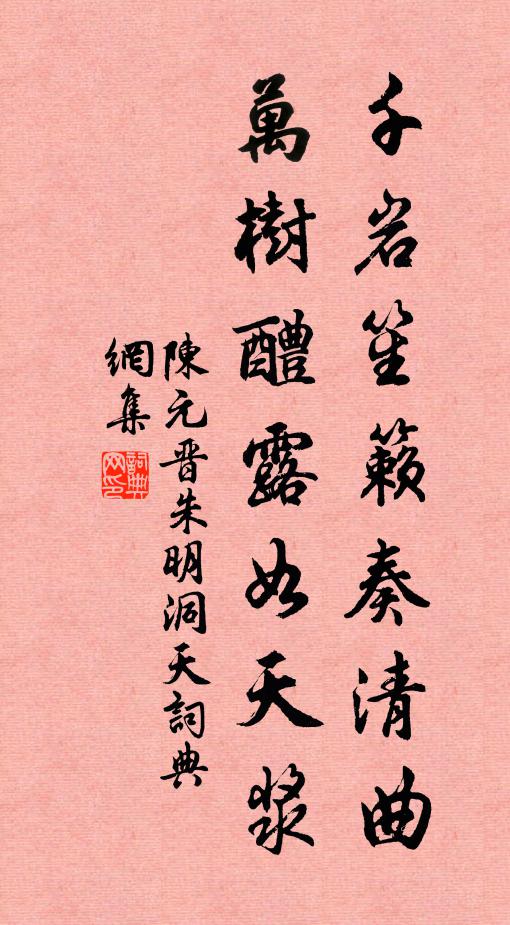 千岩笙籟奏清曲
萬樹醴露如天漿
陳元晋朱明洞天詞典
網集
詞典網印